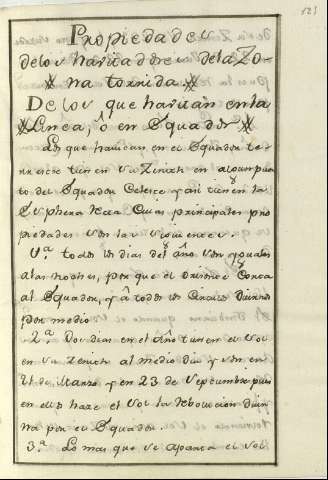 121
Propiedades
delos havitadores dela Zo-
na torrida
Delos que havitan enla
Linea, ô en Equador
Los que havitan en el Equador te-
rrestre tienen su Zenith en algun pun
to del Equador Celeste y asi tienen la
Esphera Recta Cuias principales pro
piedades son las siguientes.
1.ª todos los dias del año son yguales
a las noches, por que el Orizonte Corta
al Equador, y â todos los Circulos Diurnos
por medio
2.ª Dos dias en el Año tienen el Sol
en su Zenith al medio dia y son en
21 de Marzo y en 23 de Septiembre pues
en ellos haze el Sol la Revolucion diur
na por el Equador.
3.ª Lo mas que se aparta el Sol